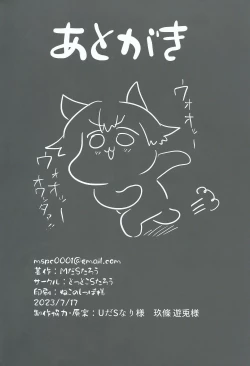 あとがき
ウォオッー
ウォオッー
オワッタァ!!
mspe0001@email.com
著作：MだSたろう
サークル：とっとこSたろう
印刷：ねこのしっぽ様
2023/7/17
制作協力・原案：UだSなり様　玖條 遊兎様